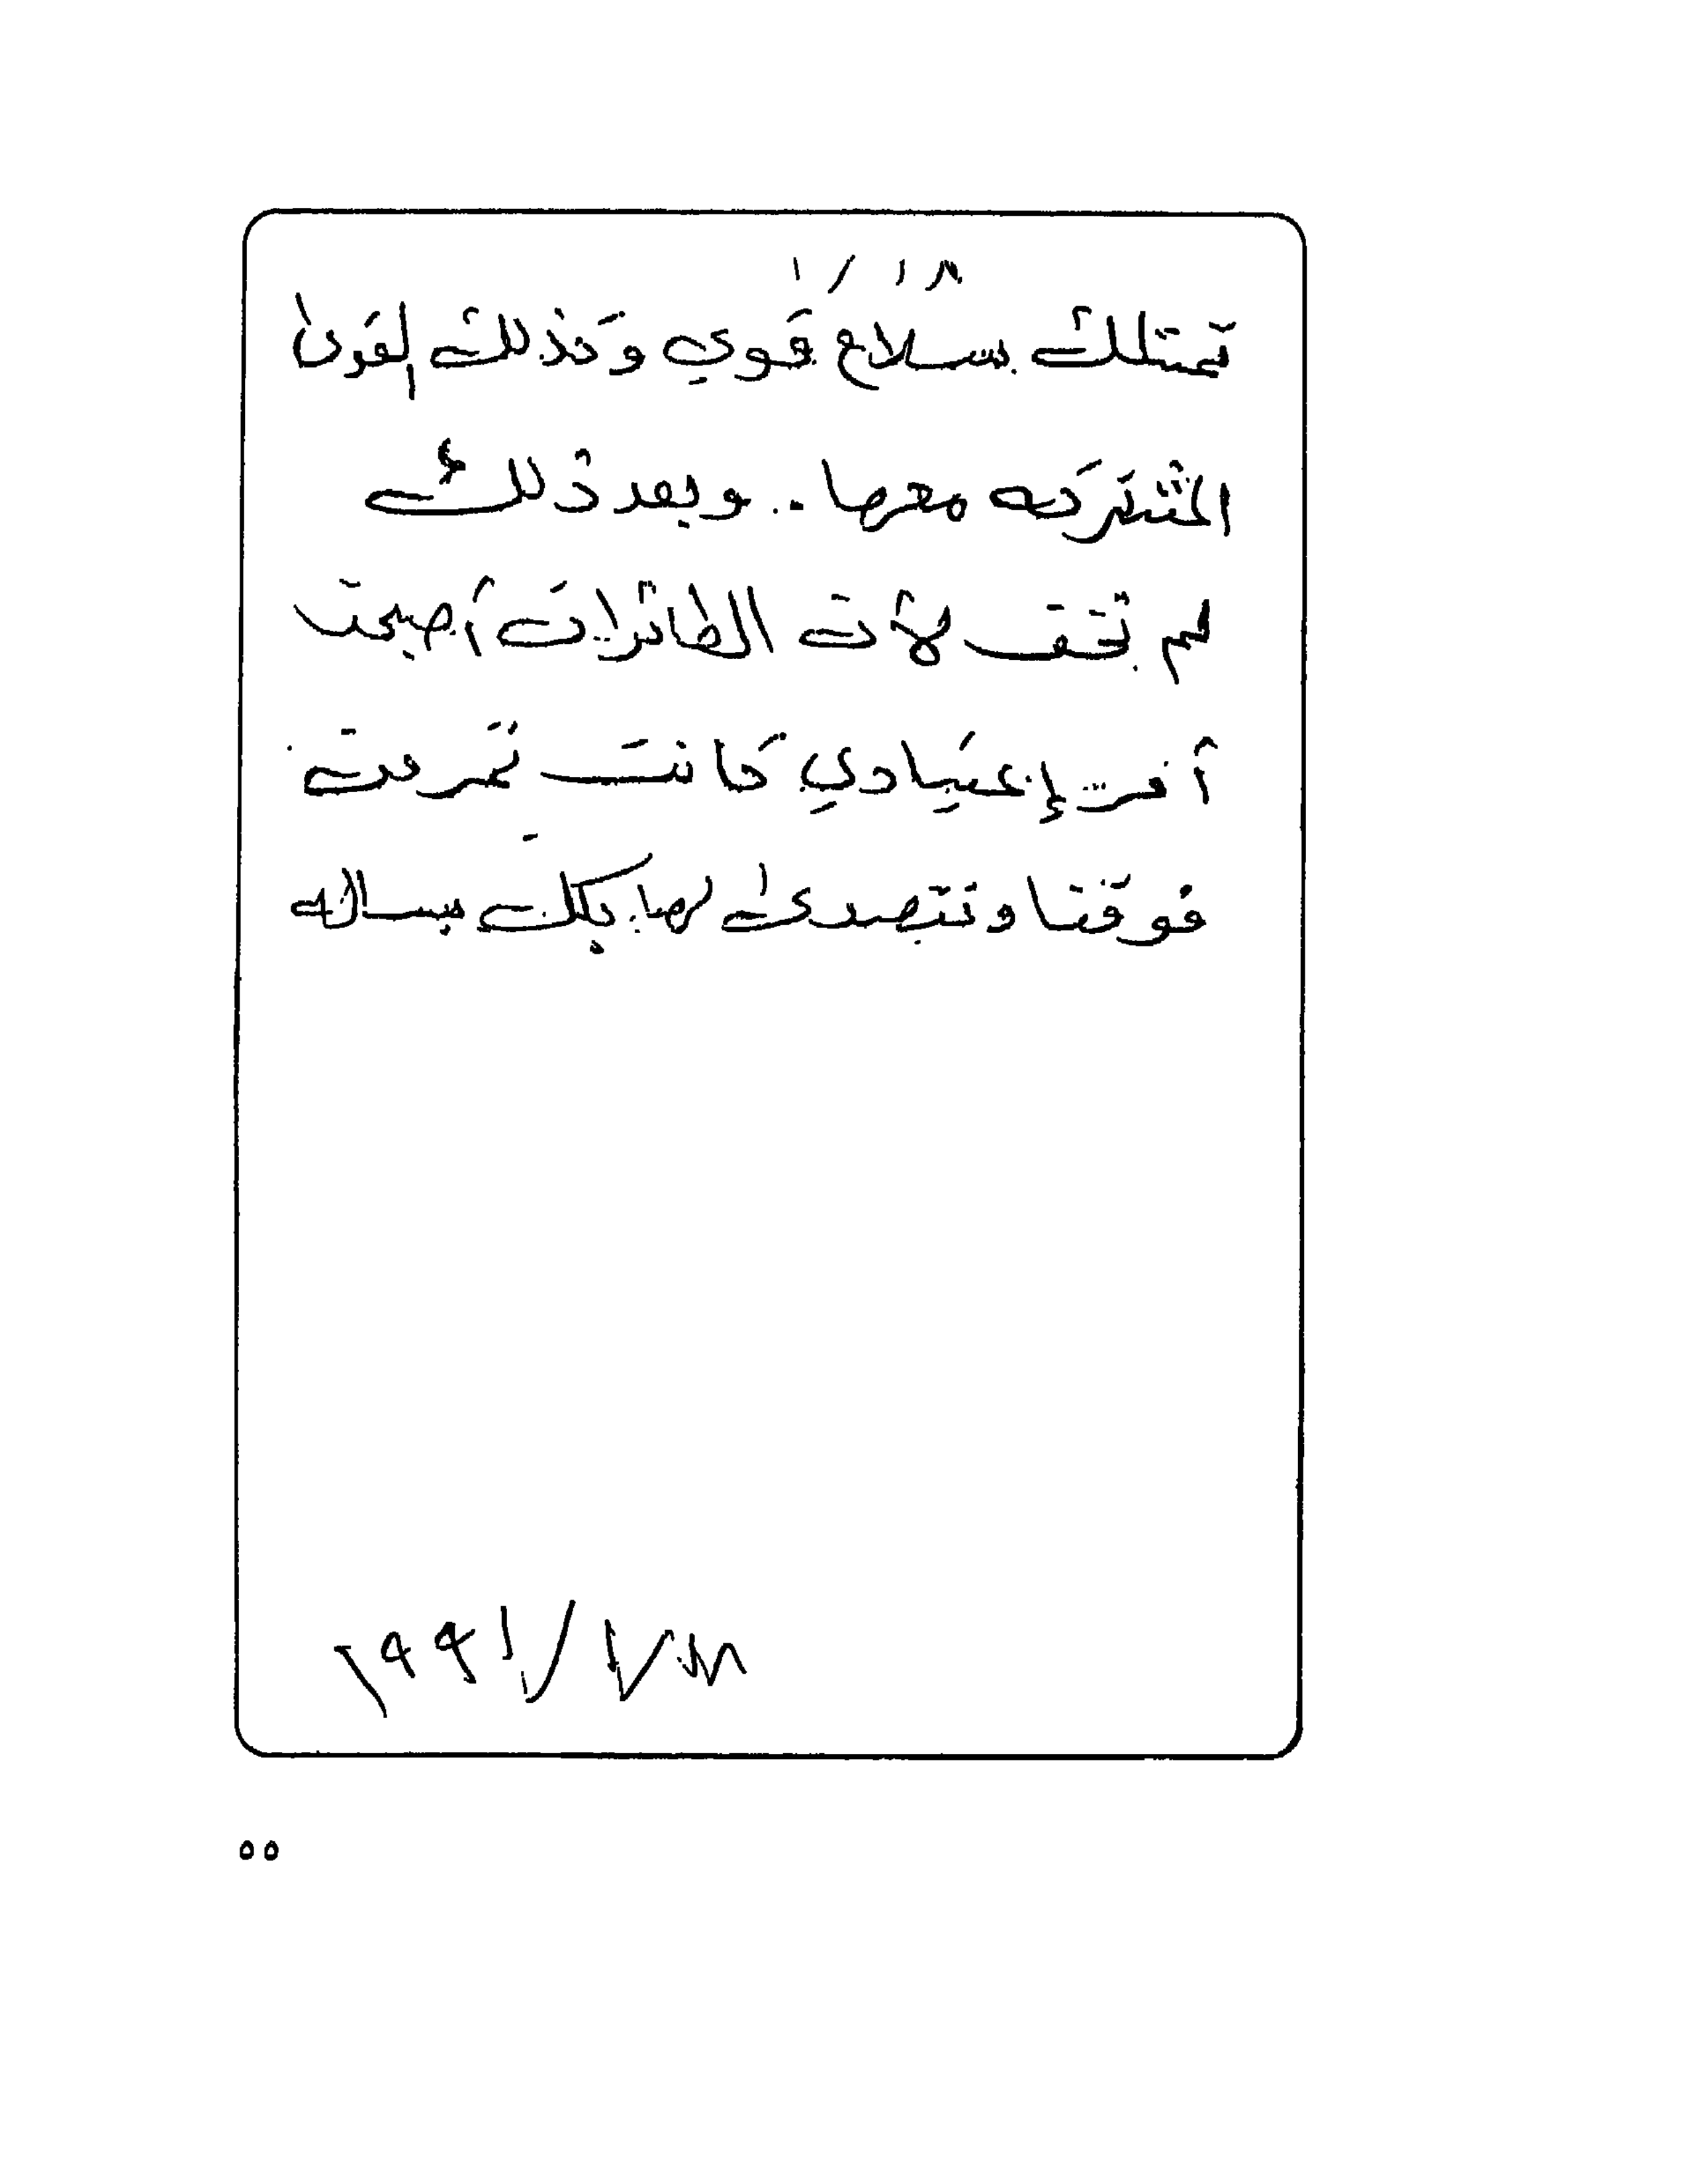 ١٨ / ١
تمتلك بسلاح قوي وكذلك القوى
المشتركه معها .. وبعد ذلك
لم تخف لأن الطائرات أصبحت
أمر إعتيادي كانت تمر من
فوقنا ونتصدى لها بكل بساله
١٩٩١/١/١٨
٥٥